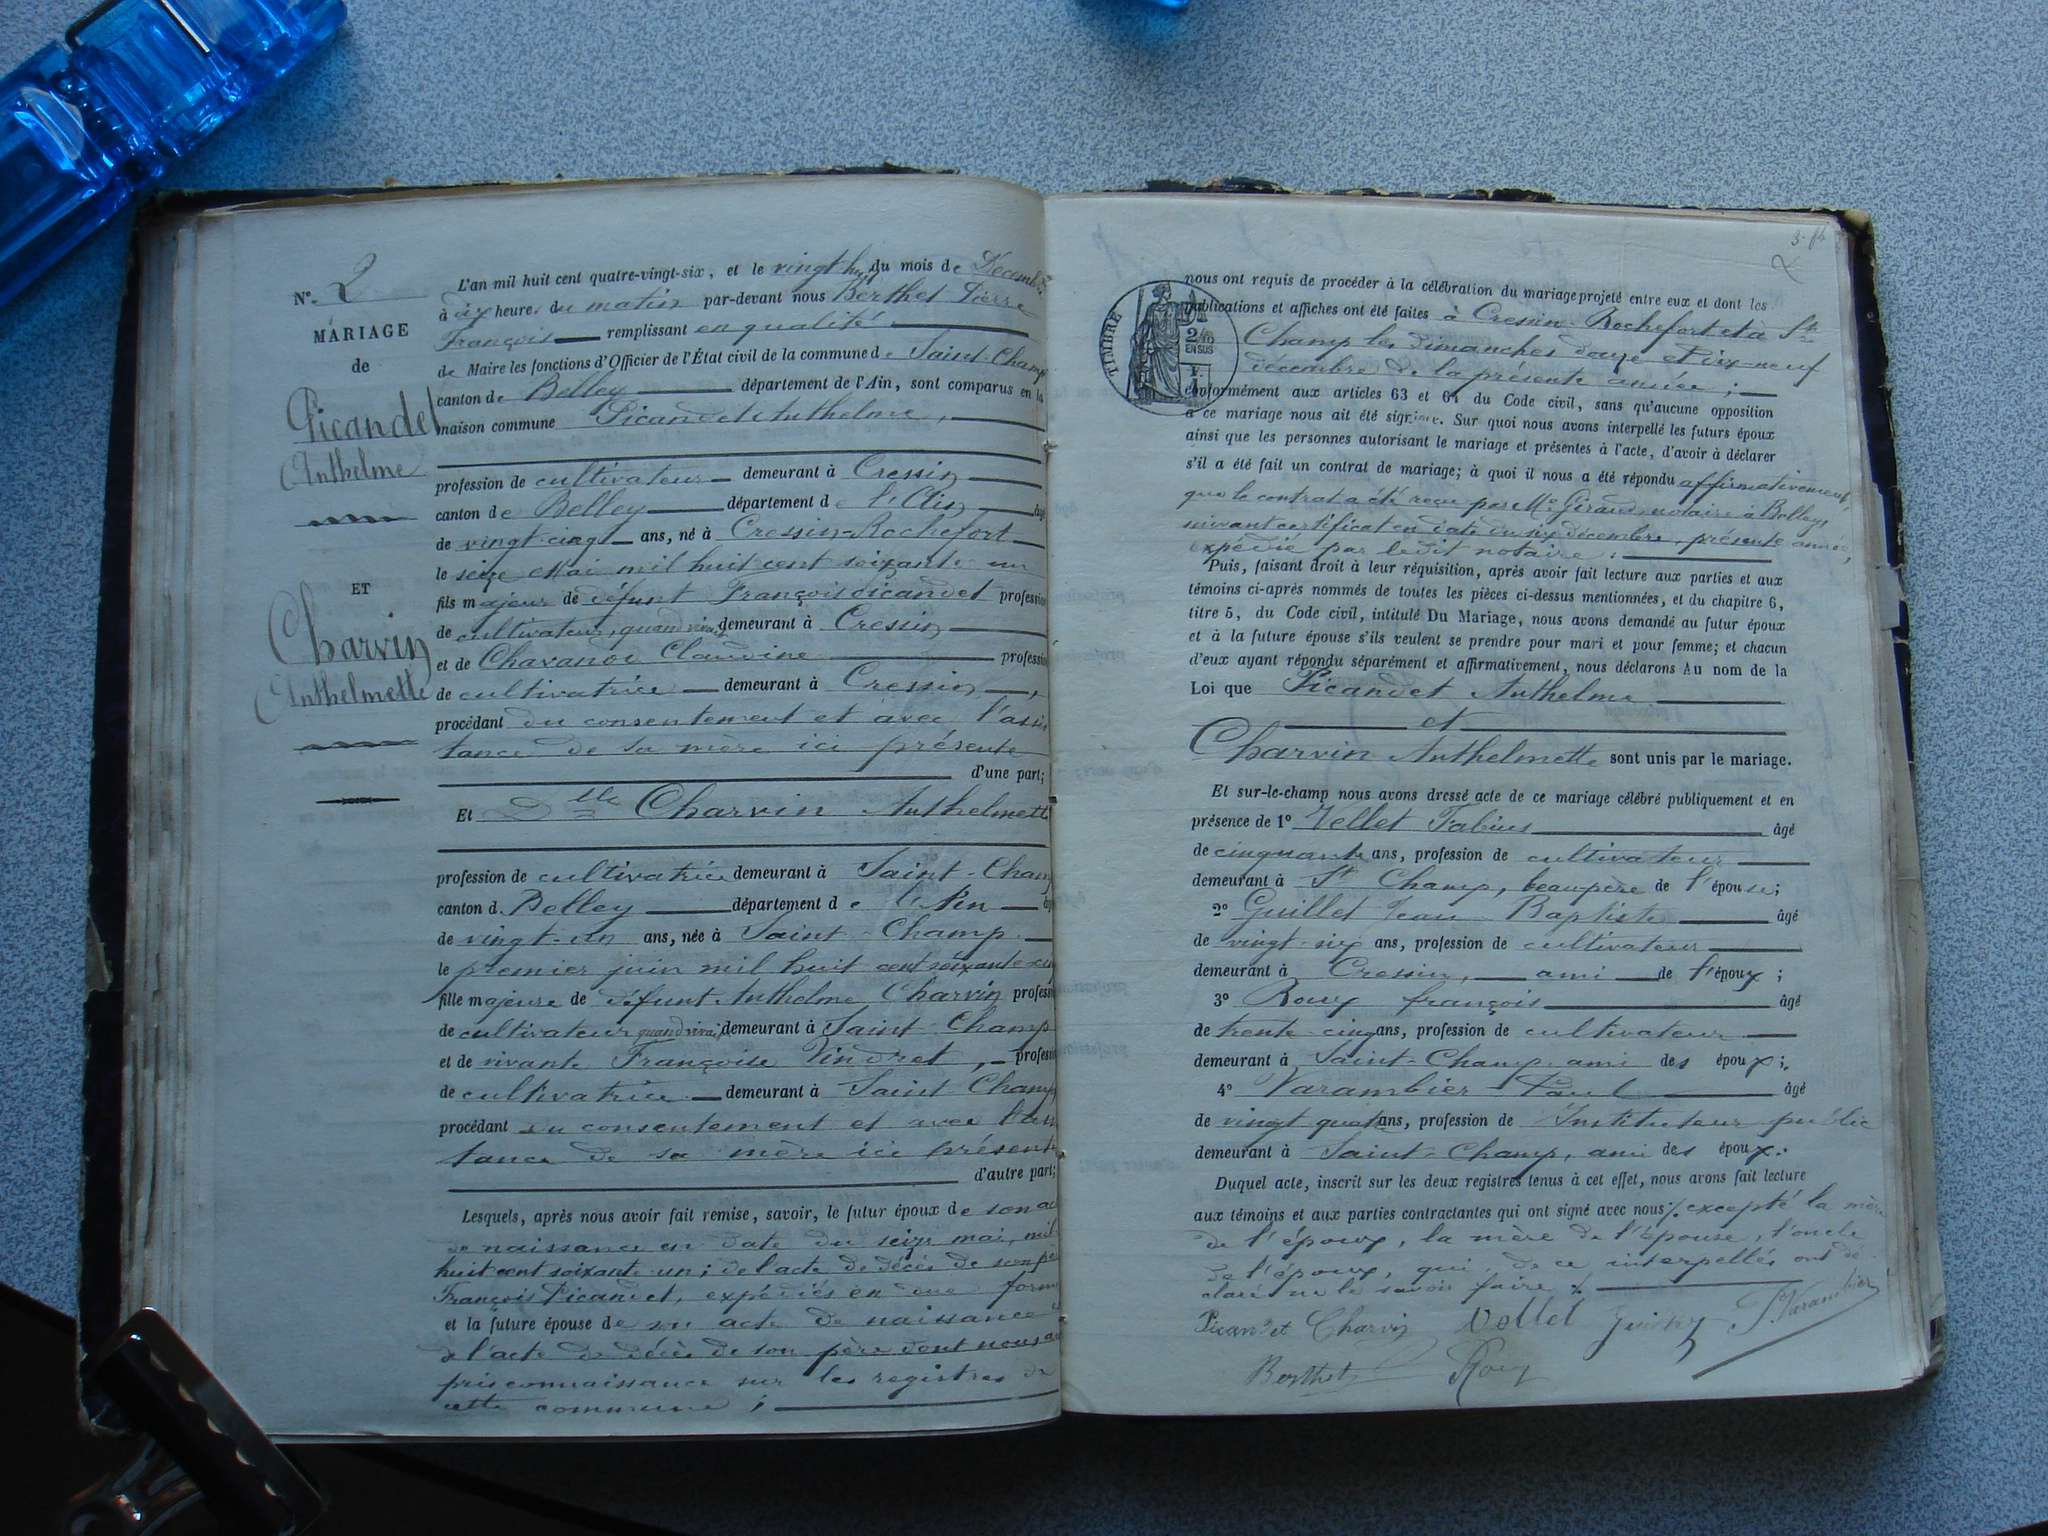 N° 2
MARIAGE
de
Picandet
Anthelme
ET
Charvin
Anthelmette
L'an mil huit cent quatre-vingt-six, et le vingt huit du mois de Décembre
à dix heures du matin par-devant nous Berthet Pierre
François remplissant en qualité
de Maire les fonctions d'Officier de l'État civil de la commune de Saint-Champ
canton de Belley département de l'Ain, sont comparus en la
maison commune Picandet Anthelme,
profession de cultivateur demeurant à Cressin
canton de Belley département de l'Ain âgé
de vingt-cinq ans, né à Cressin-Rochefort
le seize Mai mil huit cent soixante un
fils majeur de défunt François Picandet profession
de cultivateur, quand vivait demeurant à Cressin
et de Chavanoz Claudine profession
de cultivatrice demeurant à Cressin,
procédant du consentement et avec l'assis
tance de sa mère ici présente
d'une part;
Et Dlle Charvin Anthelmette
profession de cultivatrice demeurant à Saint-Champ
canton d. Belley département de l'Ain âgé
de vingt-un ans, née à Saint-Champ
le premier juin mil huit cent soixante-cinq
fille majeure de défunt Anthelme Charvin profession
de cultivateur quand vivait demeurant à Saint-Champ
et de vivante Françoise Vindret, profession
de cultivatrice demeurant à Saint Champ
procédant du consentement et avec l'assis
tance de sa mère ici présente
d'autre part;
Lesquels, après nous avoir fait remise, savoir, le futur époux de son acte
de naissance en date du seize mai, mil
huit cent soixante un; de l'acte de décès de son père
François Picandet, expédiés en due forme
et la future épouse de son acte de naissance et
de l'acte de décès de son père dont nous avons
pris connaissance sur les registres de
cette commune;
3. f°
2
TIMBRE
2/10
EN SUS
nous ont requis de procéder à la célébration du mariage projeté entre eux et dont les
publications et affiches ont été faites à Cressin-Rochefort et à St
Champ les dimanches douze et dix-neuf
décembre de la présente année;
conformément aux articles 63 et 64 du Code civil, sans qu'aucune opposition
à ce mariage nous ait été signifiée. Sur quoi nous avons interpellé les futurs époux
ainsi que les personnes autorisant le mariage et présentes à l'acte, d'avoir à déclarer
s'il a été fait un contrat de mariage; à quoi il nous a été répondu affirmativement,
que le contrat a été reçu par Me Giraud, notaire à Belley,
suivant certificat en date du six décembre, présente année,
expédié par ledit notaire.
Puis, faisant droit à leur réquisition, après avoir fait lecture aux parties et aux
témoins ci-après nommés de toutes les pièces ci-dessus mentionnées, et du chapitre 6,
titre 5, du Code civil, intitulé Du Mariage, nous avons demandé au futur époux
et à la future épouse s'ils veulent se prendre pour mari et pour femme; et chacun
d'eux ayant répondu séparément et affirmativement, nous déclarons Au nom de la
Loi que Picandet Anthelme
et
Charvin Anthelmette sont unis par le mariage.
Et sur-le-champ nous avons dressé acte de ce mariage célébré publiquement et en
présence de 1° Vellet Fabius âgé
de cinquante ans, profession de cultivateur
demeurant à St Champ, beau père de l'épouse;
2° Guillet Jean-Baptiste âgé
de vingt-six ans, profession de cultivateur
demeurant à Cressin, ami de l'époux;
3° Rouy françois âgé
de trente cinq ans, profession de cultivateur
demeurant à Saint-Champ ami des époux;
4° Varambier Paul âgé
de vingt quatre ans, profession de Instituteur public
demeurant à Saint-Champ, ami des époux.
Duquel acte, inscrit sur les deux registres tenus à cet effet, nous avons fait lecture
aux témoins et aux parties contractantes qui ont signé avec nous % excepté la mère
de l'époux, la mère de l'épouse, l'oncle
de l'époux, qui, de ce interpellés ont dé
claré ne le savoir faire %
Picandet Charvin Vellet P. Varambier
Berthet Rouy